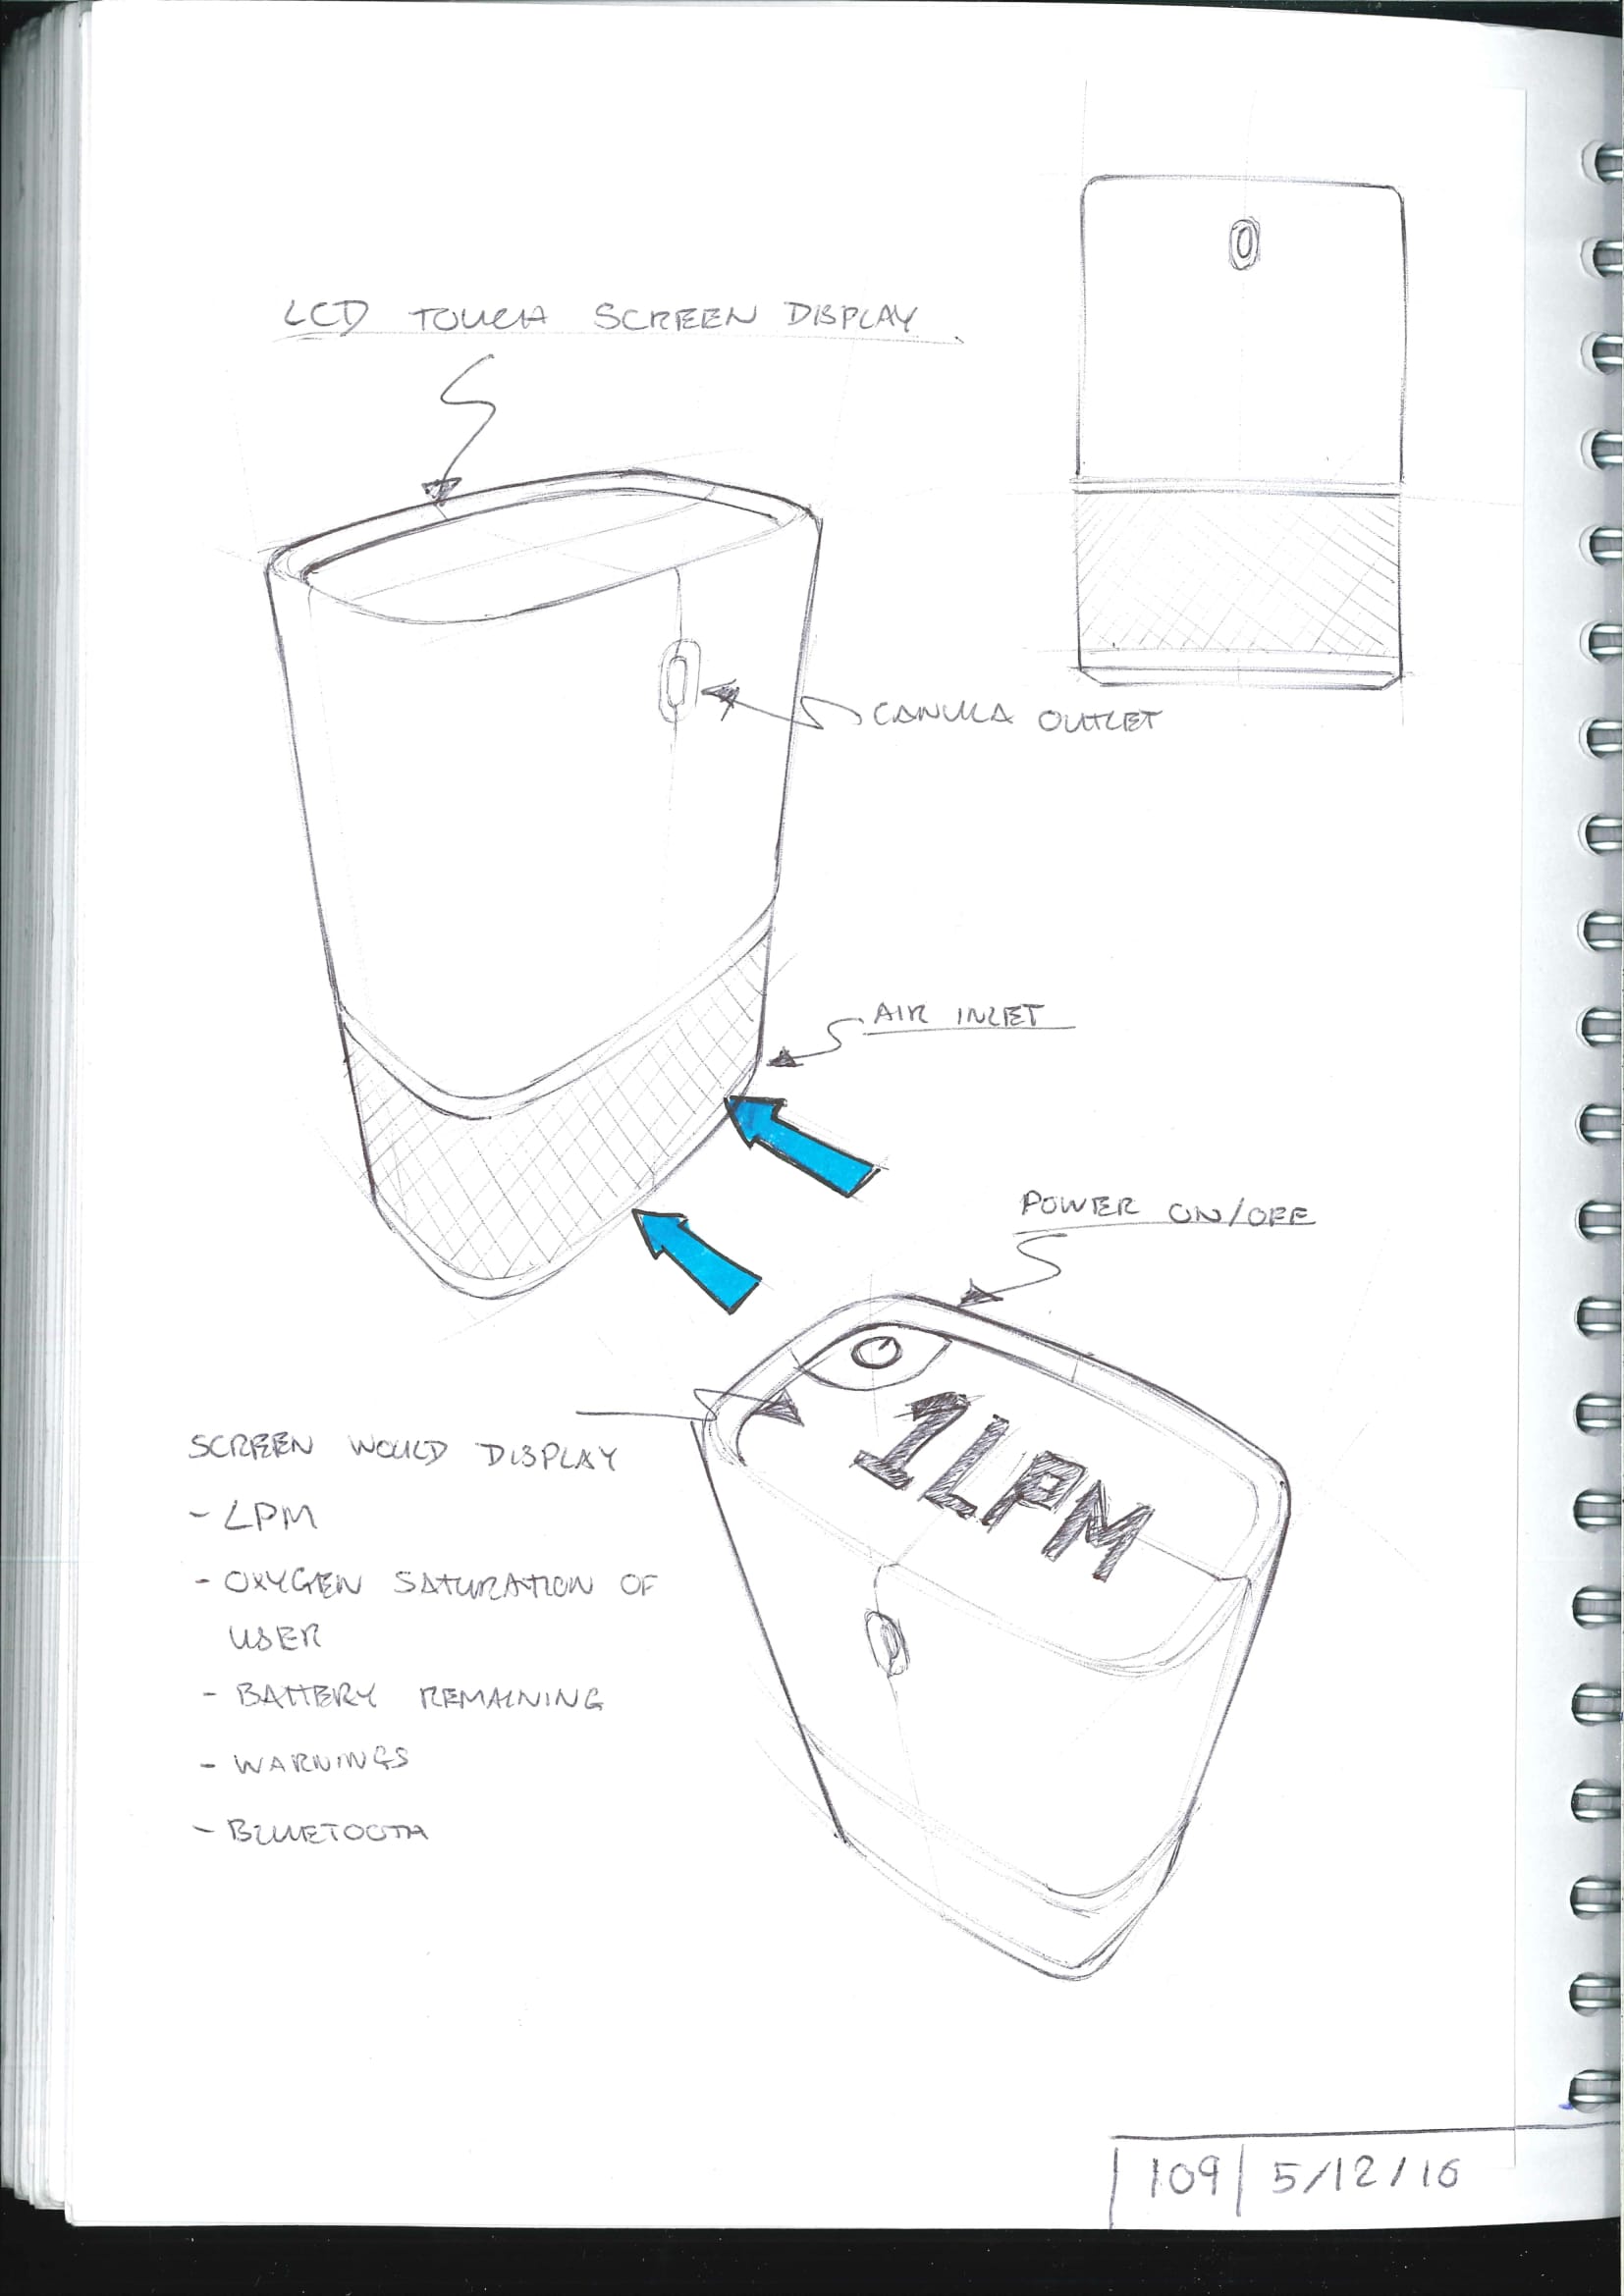 LCD TOUCH SCREEN DISPLAY
CANULA OUTLET
AIR INLET
POWER ON/OFF
1LPM
SCREEN WOULD DISPLAY
- LPM
- OXYGEN SATURATION OF
USER
- BATTERY REMAINING
- WARNINGS
- BLUETOOTH
109 5/12/16